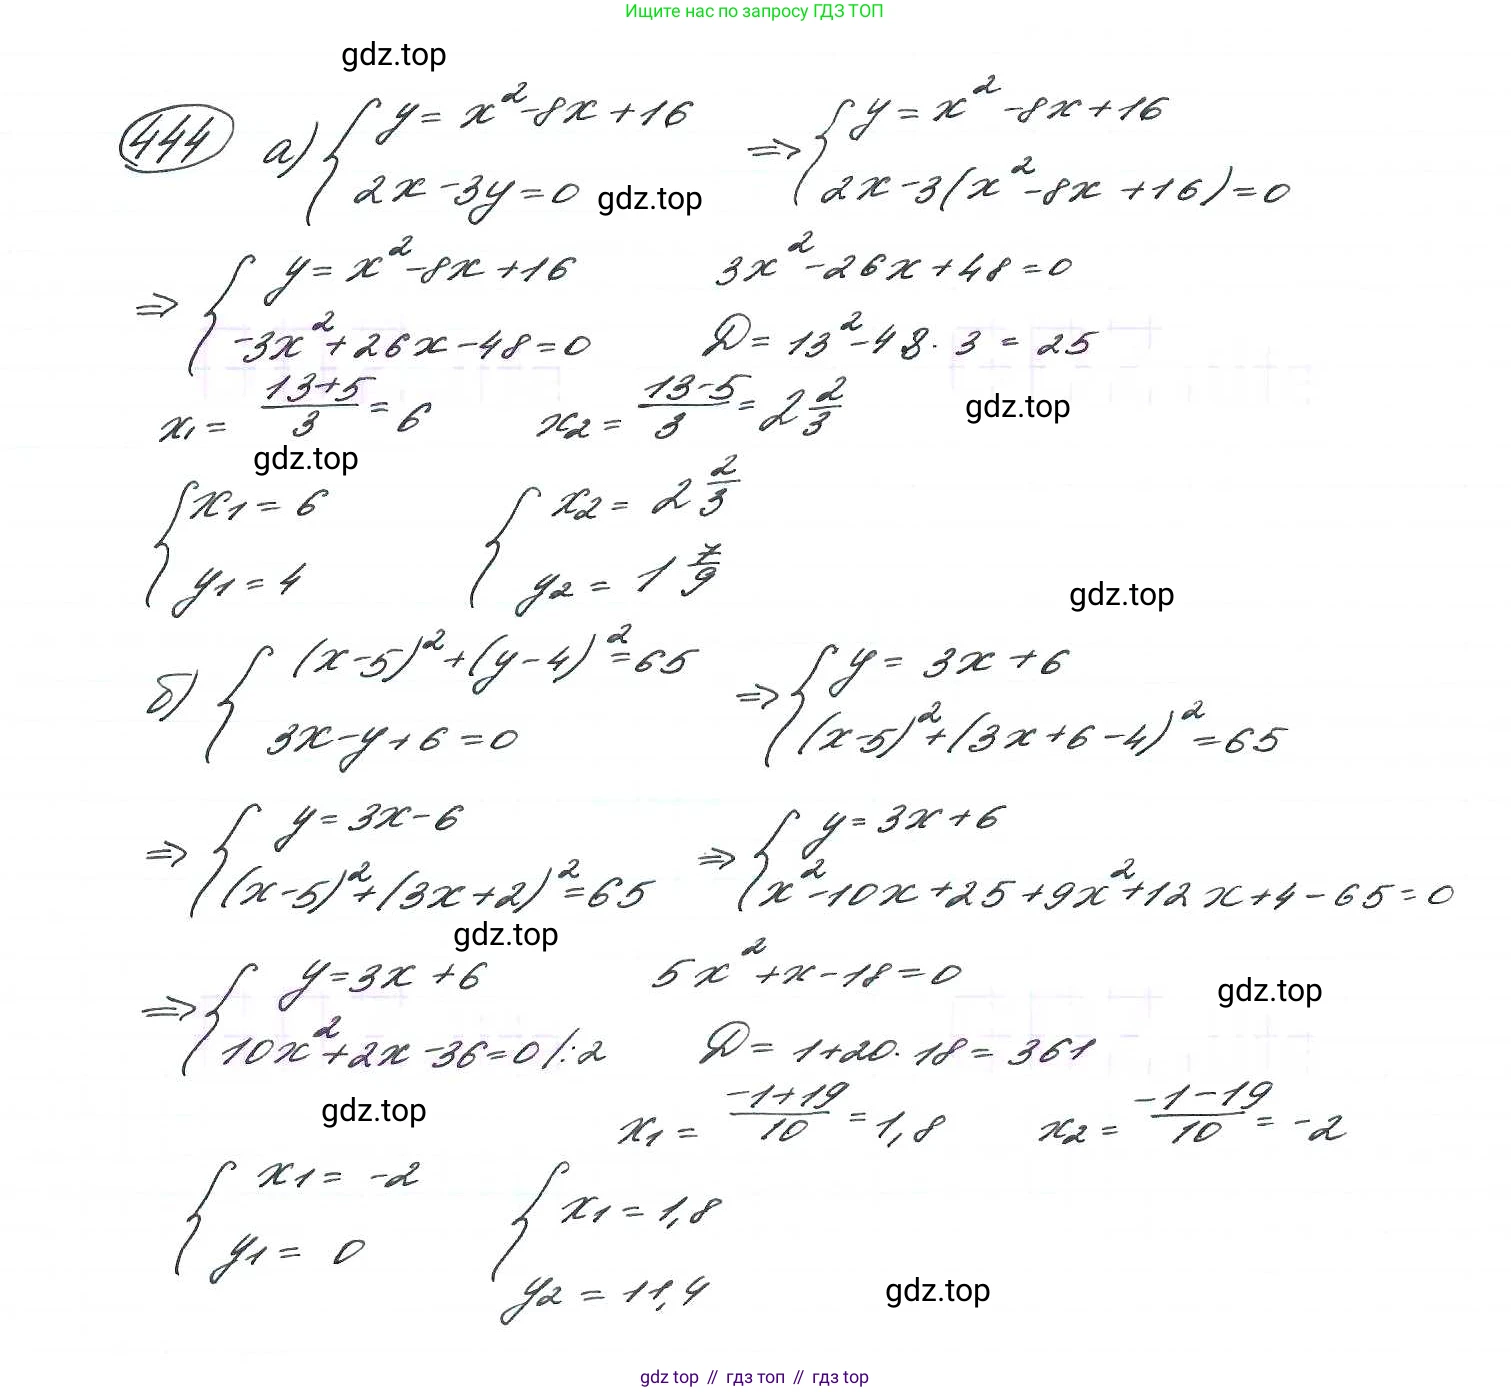 Ищите нас по запросу ГДЗ ТОП
gdz.top
444 а) { y = x² - 8x + 16 ⇒ { y = x² - 8x + 16
2x - 3y = 0 gdz.top 2x - 3(x² - 8x + 16) = 0
⇒ { y = x² - 8x + 16 3x² - 26x + 48 = 0
-3x² + 26x - 48 = 0 D = 13² - 48 · 3 = 25
x₁ = (13+5)/3 = 6 x₂ = (13-5)/3 = 2 2/3 gdz.top
gdz.top
{ x₁ = 6 { x₂ = 2 2/3
y₁ = 4 y₂ = 1 7/9
gdz.top
б) { (x-5)² + (y-4)² = 65 ⇒ { y = 3x + 6
3x - y + 6 = 0 (x-5)² + (3x+6-4)² = 65
⇒ { y = 3x - 6 ⇒ { y = 3x + 6
(x-5)² + (3x+2)² = 65 x² - 10x + 25 + 9x² + 12x + 4 - 65 = 0
gdz.top
⇒ { y = 3x + 6 5x² + x - 18 = 0 gdz.top
10x² + 2x - 36 = 0 /:2 D = 1 + 20 · 18 = 361
gdz.top x₁ = (-1+19)/10 = 1,8 x₂ = (-1-19)/10 = -2
{ x₁ = -2 { x₁ = 1,8
y₁ = 0 y₂ = 11,4 gdz.top
gdz top // гдз топ // gdz top